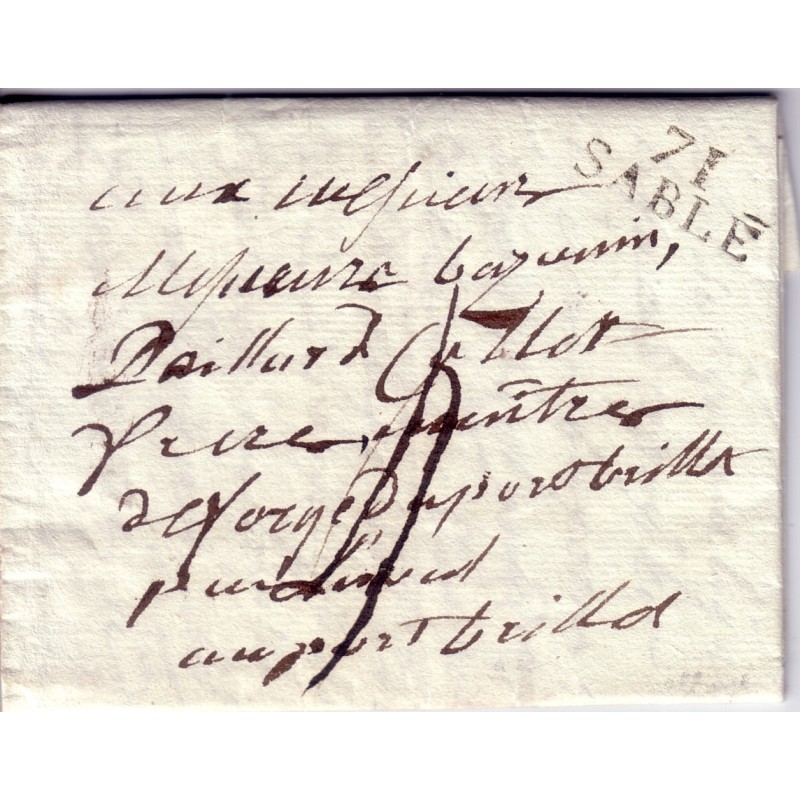 71
SABLÉ
aux messieurs
Messieurs bazouin,
Paillard
frere, maîtres
de forge Du port brillet
par Laval
au port brillet